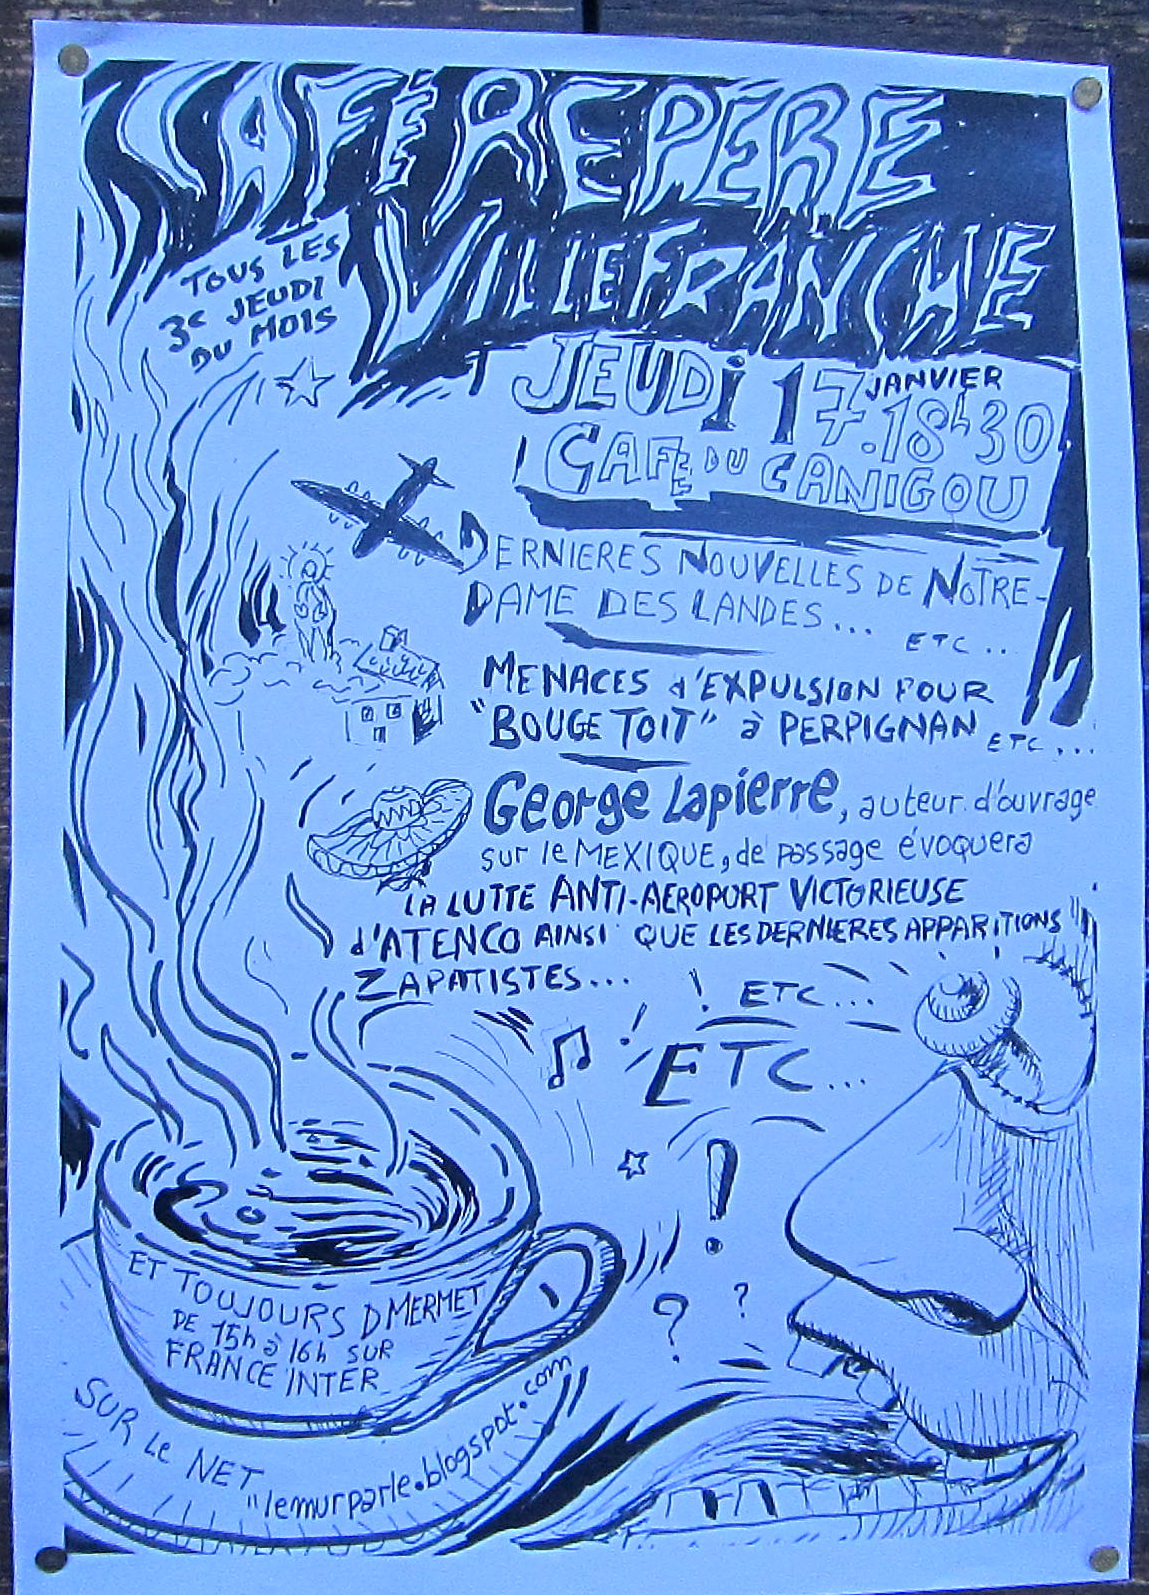 CAFÉ REPÈRE
VILLEFRANCHE
TOUS LES
3e JEUDI
DU MOIS
JEUDi 17 JANVIER
.18h30
CAFE DU CANIGOU
DERNIERES NOUVELLES DE NOTRE-
DAME DES LANDES... ETC...
MENACES d'EXPULSION POUR
"BOUGE TOIT" à PERPIGNAN ETC...
George Lapierre, auteur d'ouvrage
sur le MEXIQUE, de passage évoquera
LA LUTTE ANTI-AEROPORT VICTORIEUSE
d'ATENCO AINSI QUE LES DERNIERES APPARITIONS
ZAPATISTES... ! ETC...
! ETC...
!
? ?
ET TOUJOURS D MERMET
DE 15h à 16h SUR
FRANCE INTER
SUR LE NET
"lemurparle.blogspot.com